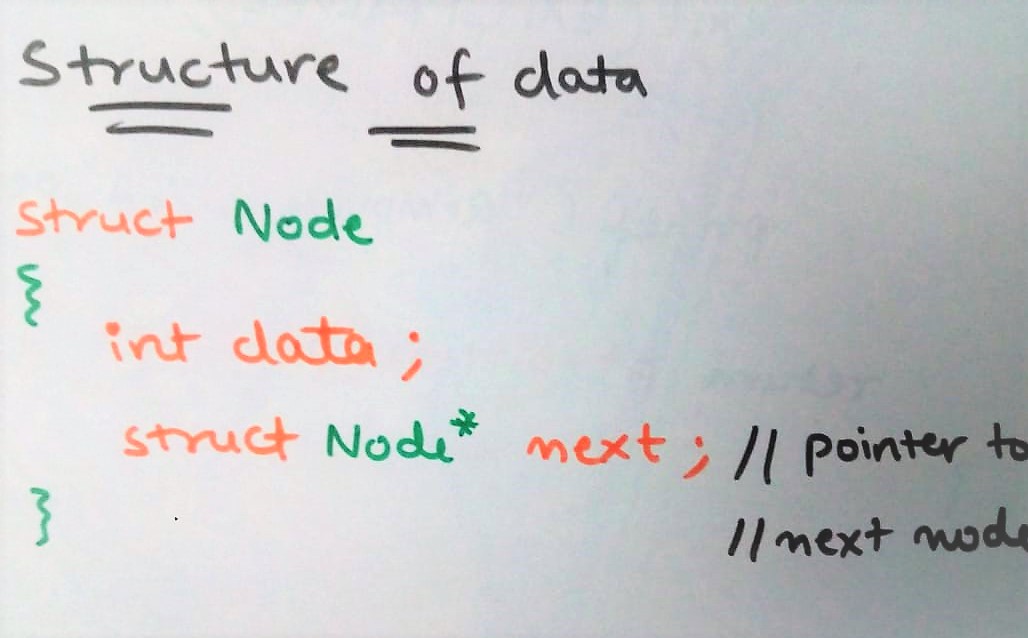 Structure of data
struct Node
{
int data ;
struct Node* next ; // pointer to
// next node
}